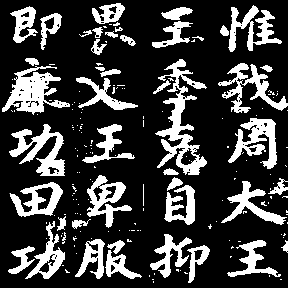 惟我周大王
王季克自抑
畏文王卑服
即康功田功